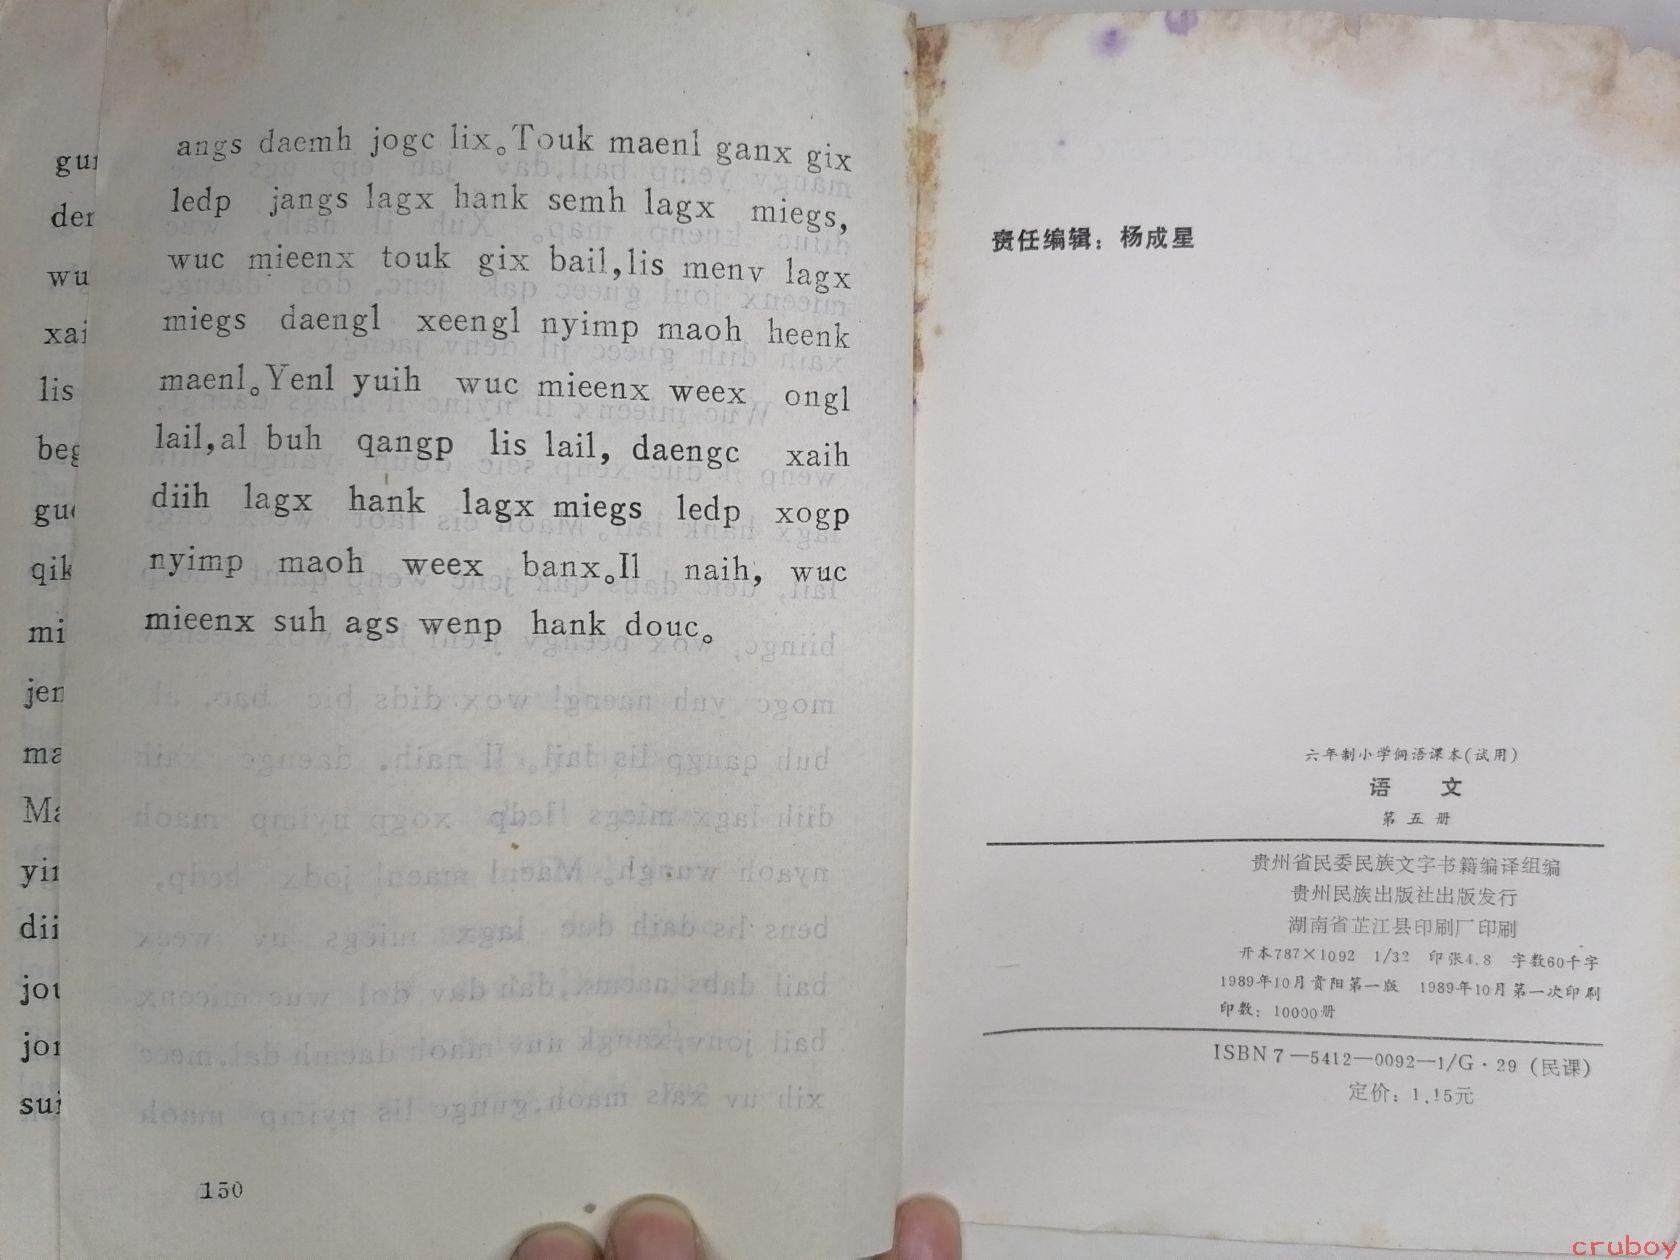 gu
der
wu
xai
lis
beg
gu
qik
mi
jer
ma
Ma
yi
dii
jou
jor
sui
angs daemh jogc lix。Touk maenl ganx gix
ledp jangs lagx hank semh lagx miegs,
wuc mieenx touk gix bail,lis menv lagx
miegs daengl xeengl nyimp maoh heenk
maenl。Yenl yuih wuc mieenx weex ongl
lail,al buh qangp lis lail, daengc xaih
diih lagx hank lagx miegs ledp xogp
nyimp maoh weex banx。Il naih, wuc
mieenx suh ags wenp hank douc。
150
责任编辑：杨成星
六年制小学侗语课本(试用)
语 文
第五册
贵州省民委民族文字书籍编译组编
贵州民族出版社出版发行
湖南省芷江县印刷厂印刷
开本787×1092 1/32 印张4.8 字数60千字
1989年10月贵阳第一版 1989年10月第一次印刷
印数：10000册
ISBN 7—5412—0092—1/G·29（民课）
定价：1.15元
cruboy